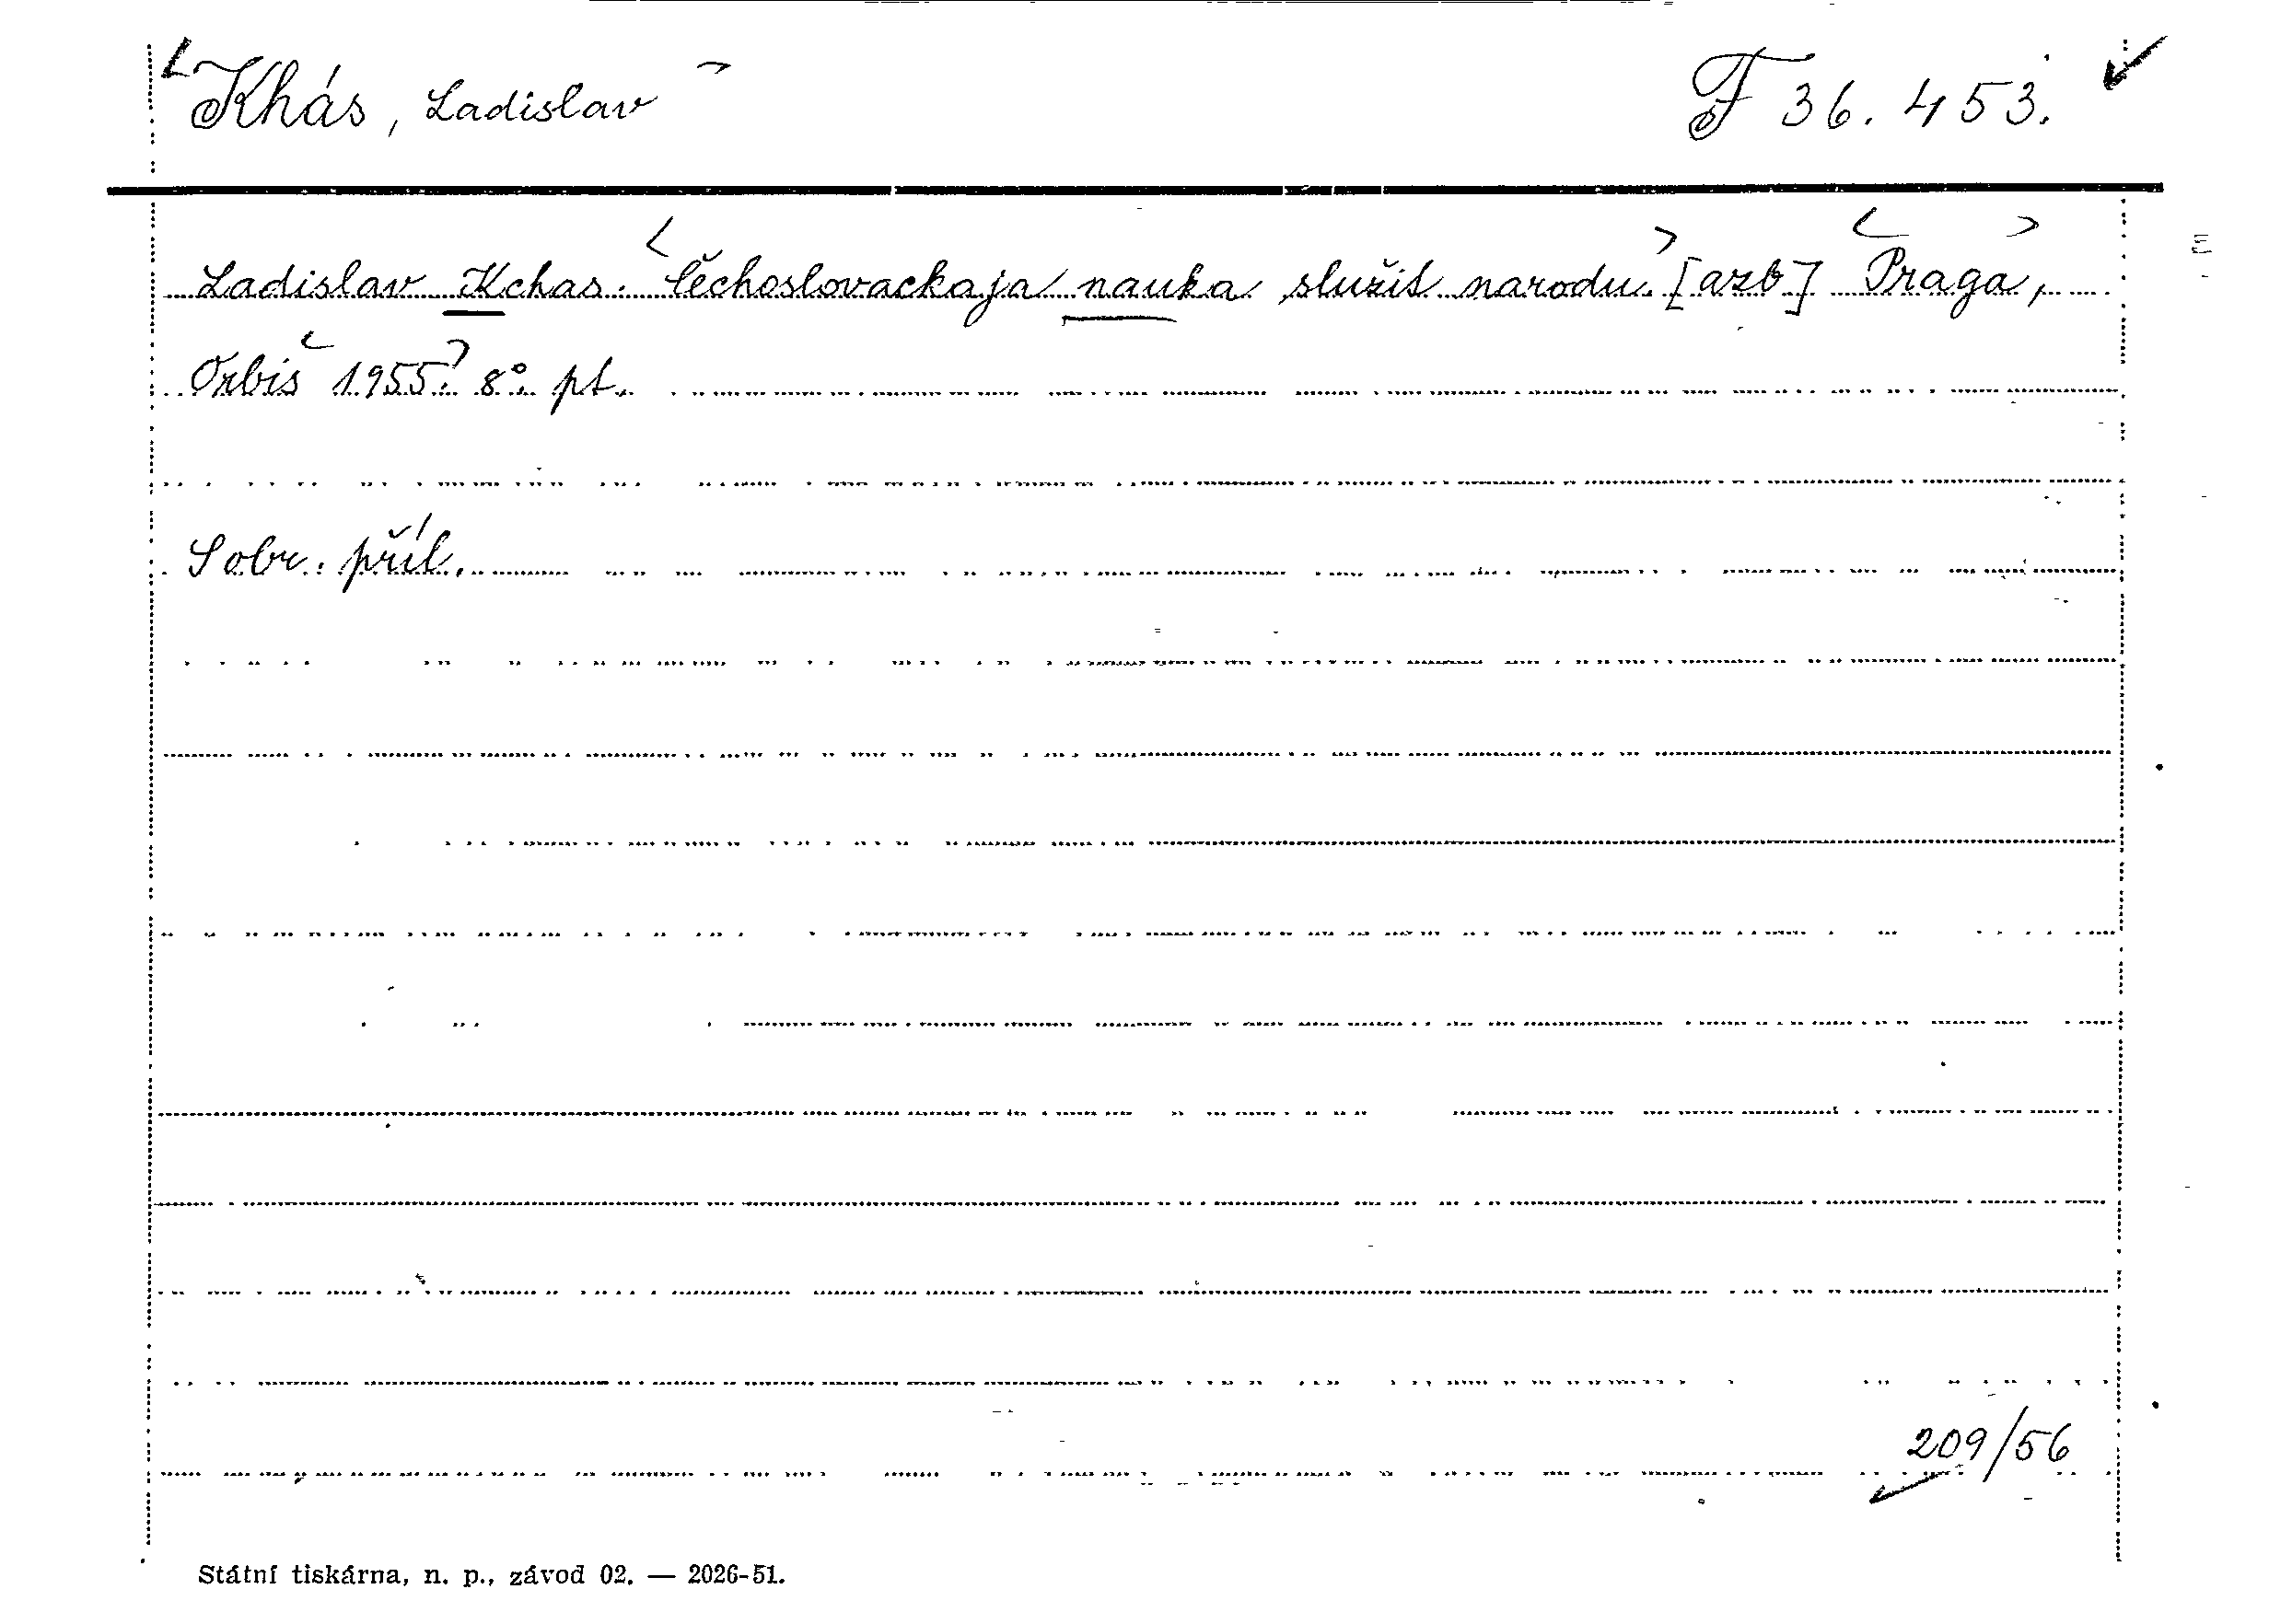 Khás, Ladislav F 36.453.
Ladislav Kchas. Čechoslovackaja nauka služit narodu. [azb] Praga,
Orbis 1955. 8°. pt.
Sobr. příl.
209/56
Státní tiskárna, n. p., závod 02. — 2026-51.